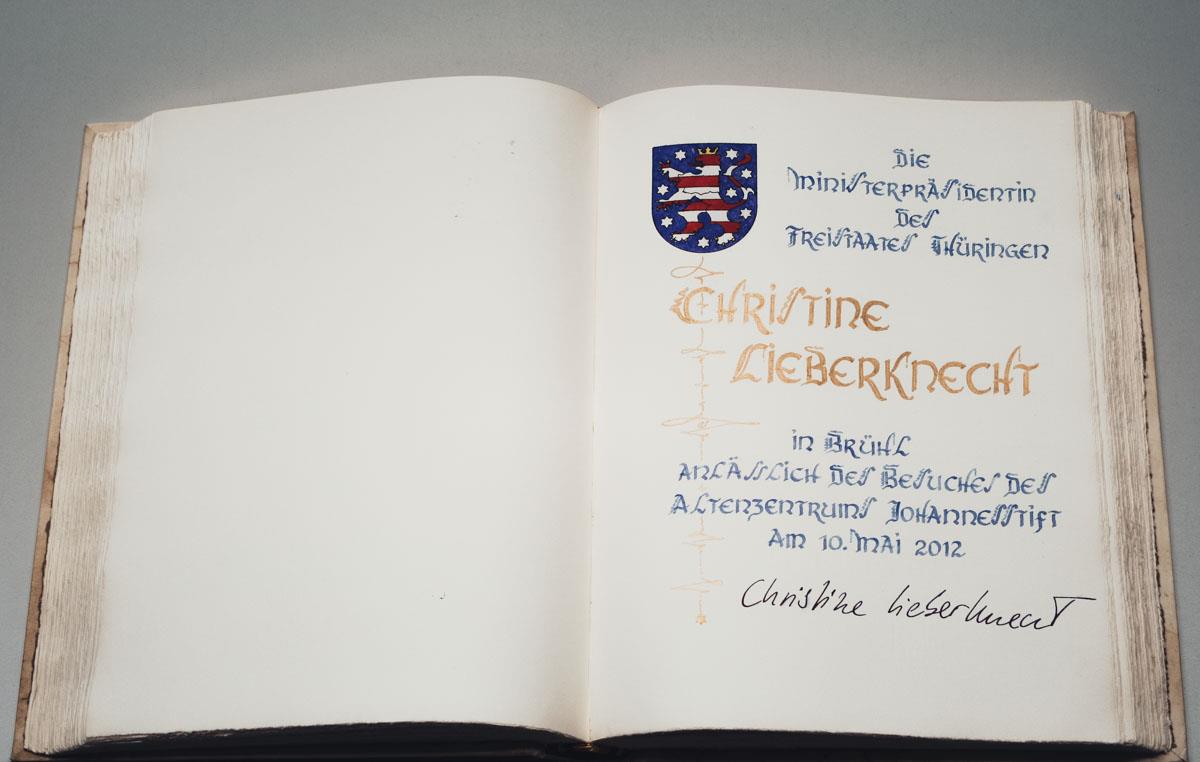 Die
Ministerpräsidentin
des
Freistaates Thüringen
Christine
Lieberknecht
in Brühl
anlässlich des Besuches des
Altenzentrums Johannesstift
am 10. Mai 2012
Christine Lieberknecht